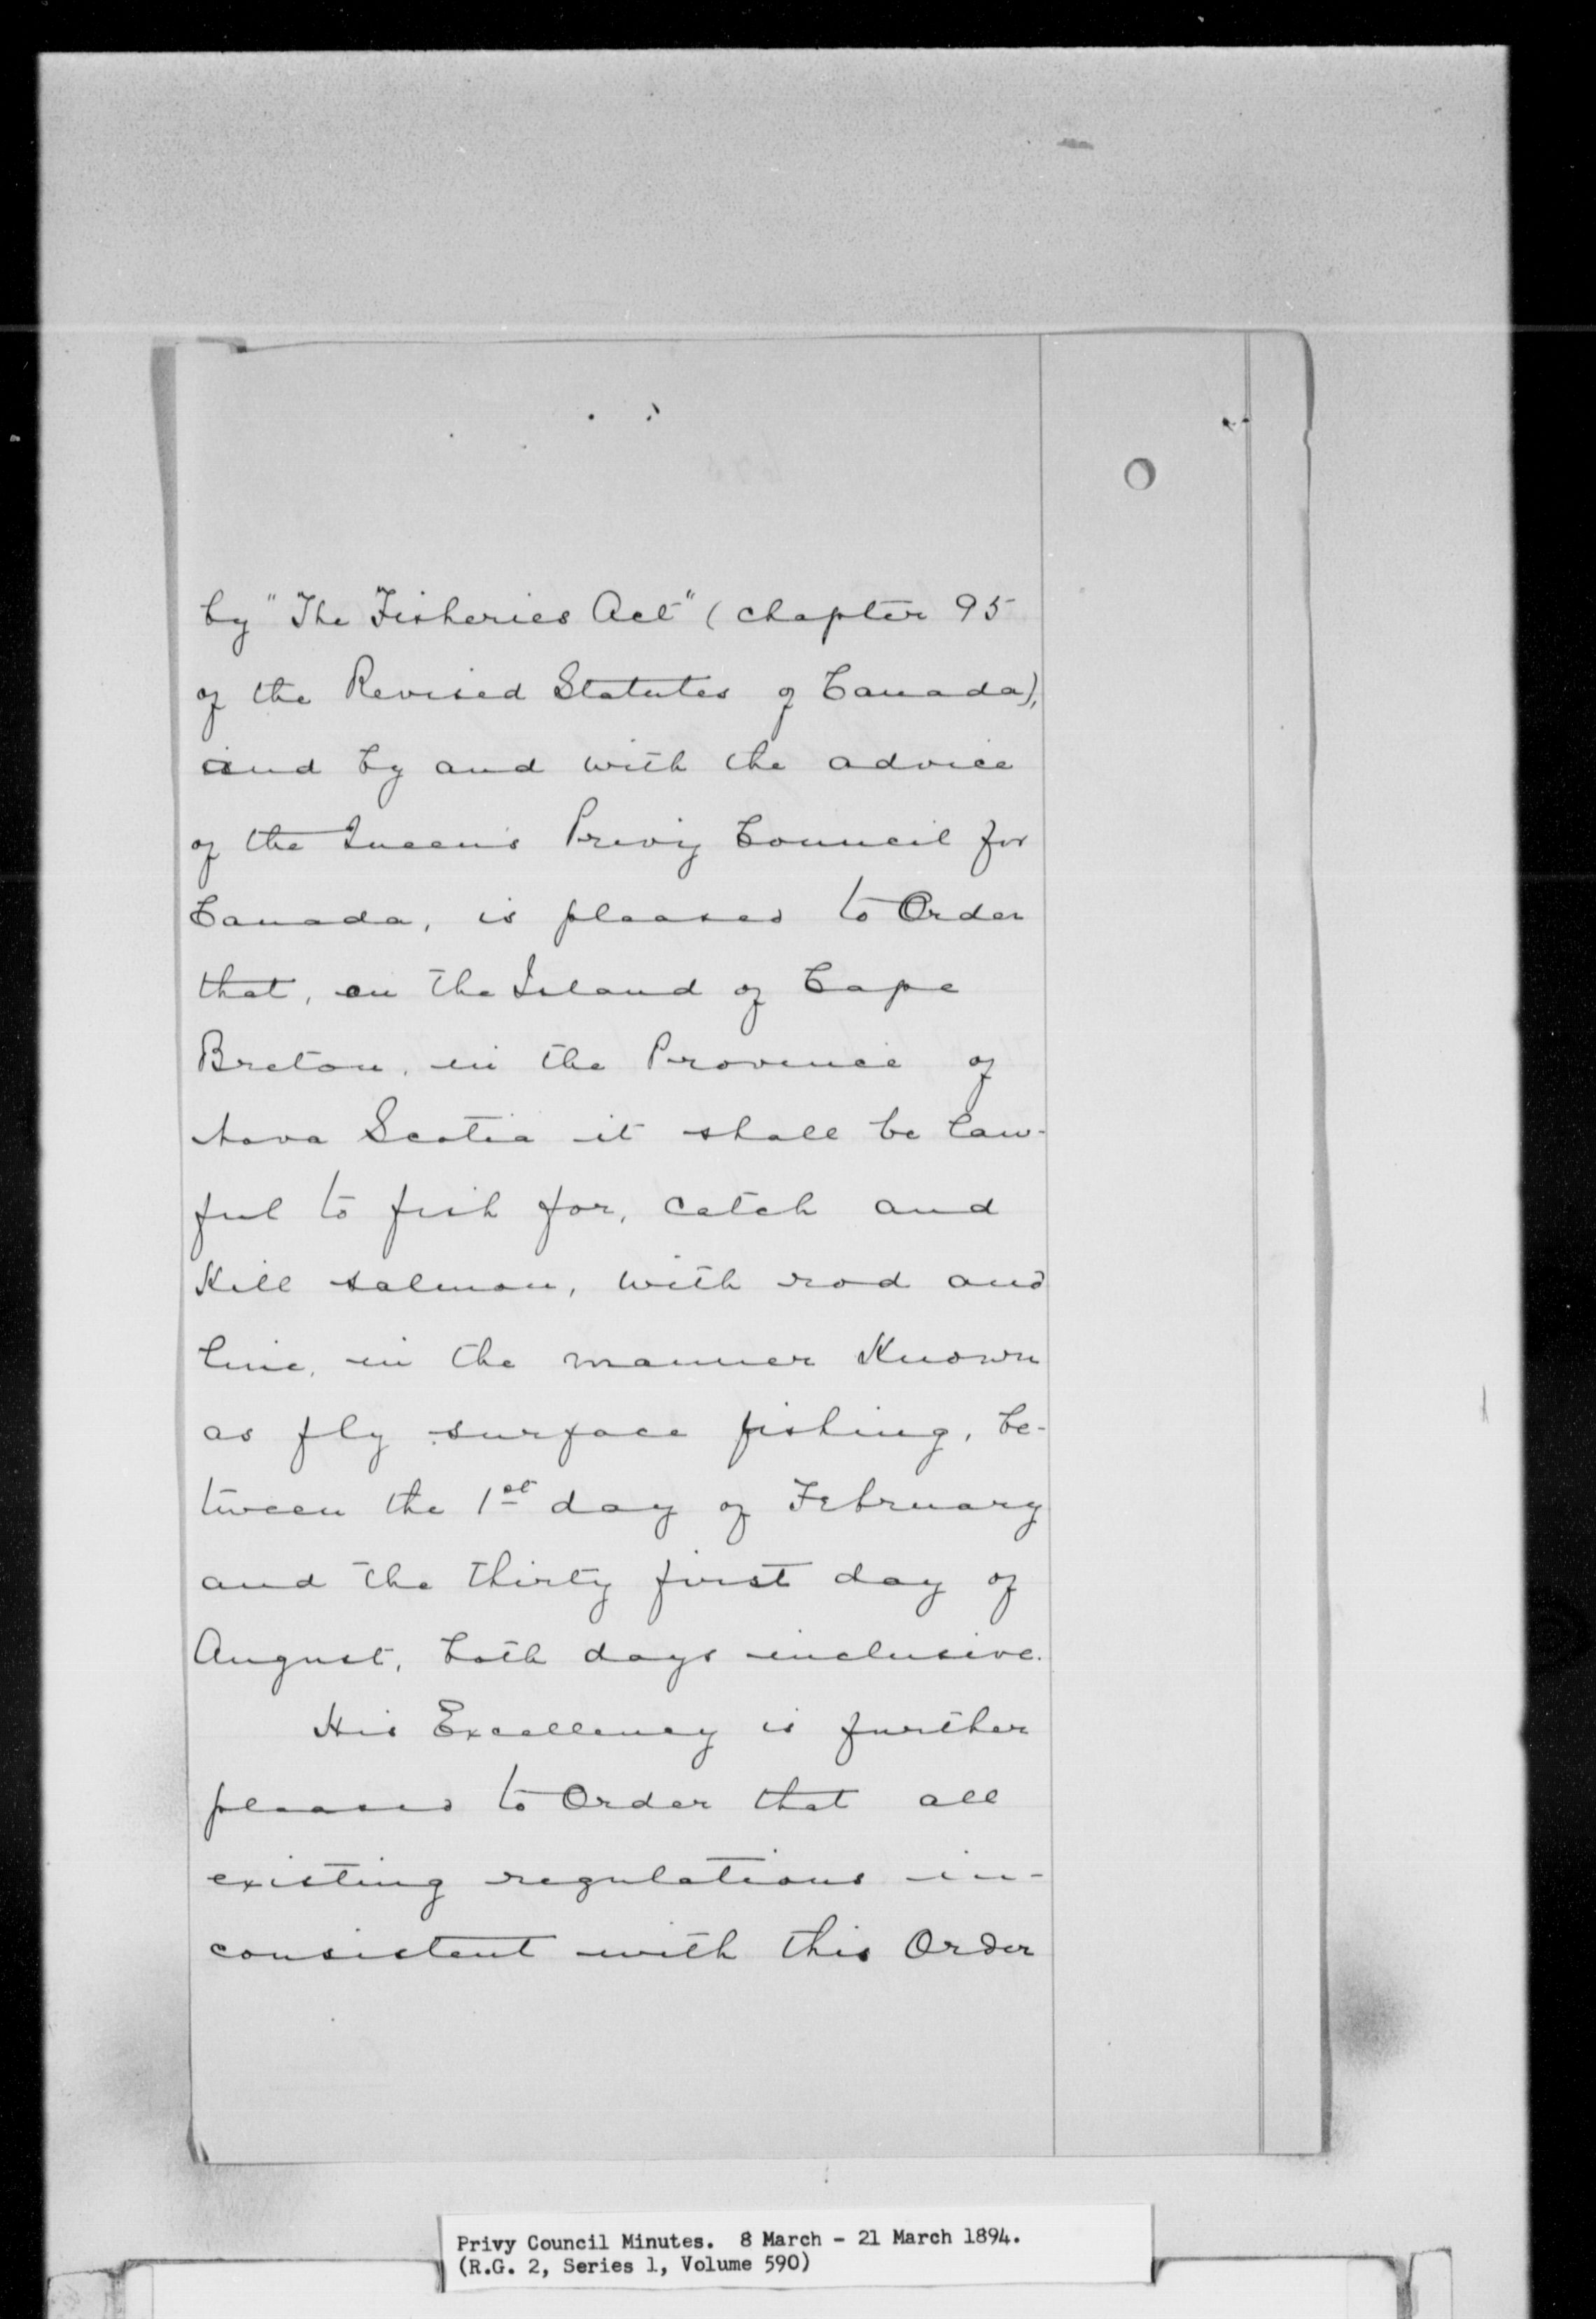 by "The Fisheries Act" (chapter 95
of the Revised Statutes of Canada),
and by and with the advice
of the Queen's Privy Council for
Canada, is pleased to Order
that, on the Island of Cape
Breton, in the Province of
Nova Scotia it shall be law-
ful to fish for, catch and
kill salmon, with rod and
line, in the manner known
as fly surface fishing, be-
tween the 1st day of February
and the thirty first day of
August, both days inclusive.
His Excellency is further
pleased to Order that all
existing regulations in-
consistent with this Order
Privy Council Minutes. 8 March - 21 March 1894.
(R.G. 2, Series 1, Volume 590)